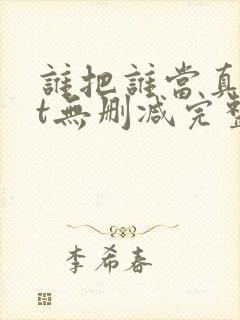 誰把誰當真
t無删减完整
李希春